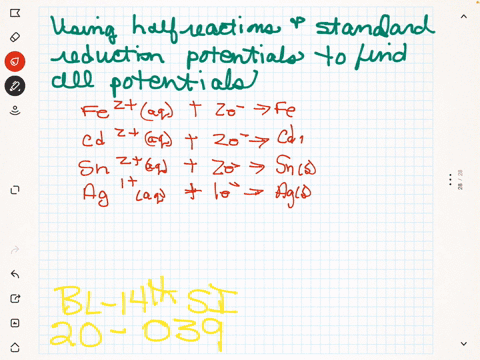 Using half reactions & standard
reduction potentials to find
all potentials
Fe 2+ (aq) + 2e- → Fe
Cd 2+ (aq) + 2e- → Cd
Sn 2+ (aq) + 2e- → Sn(s)
Ag 1+ (aq) + 1e- → Ag(s)
BL-14th SI
20-039